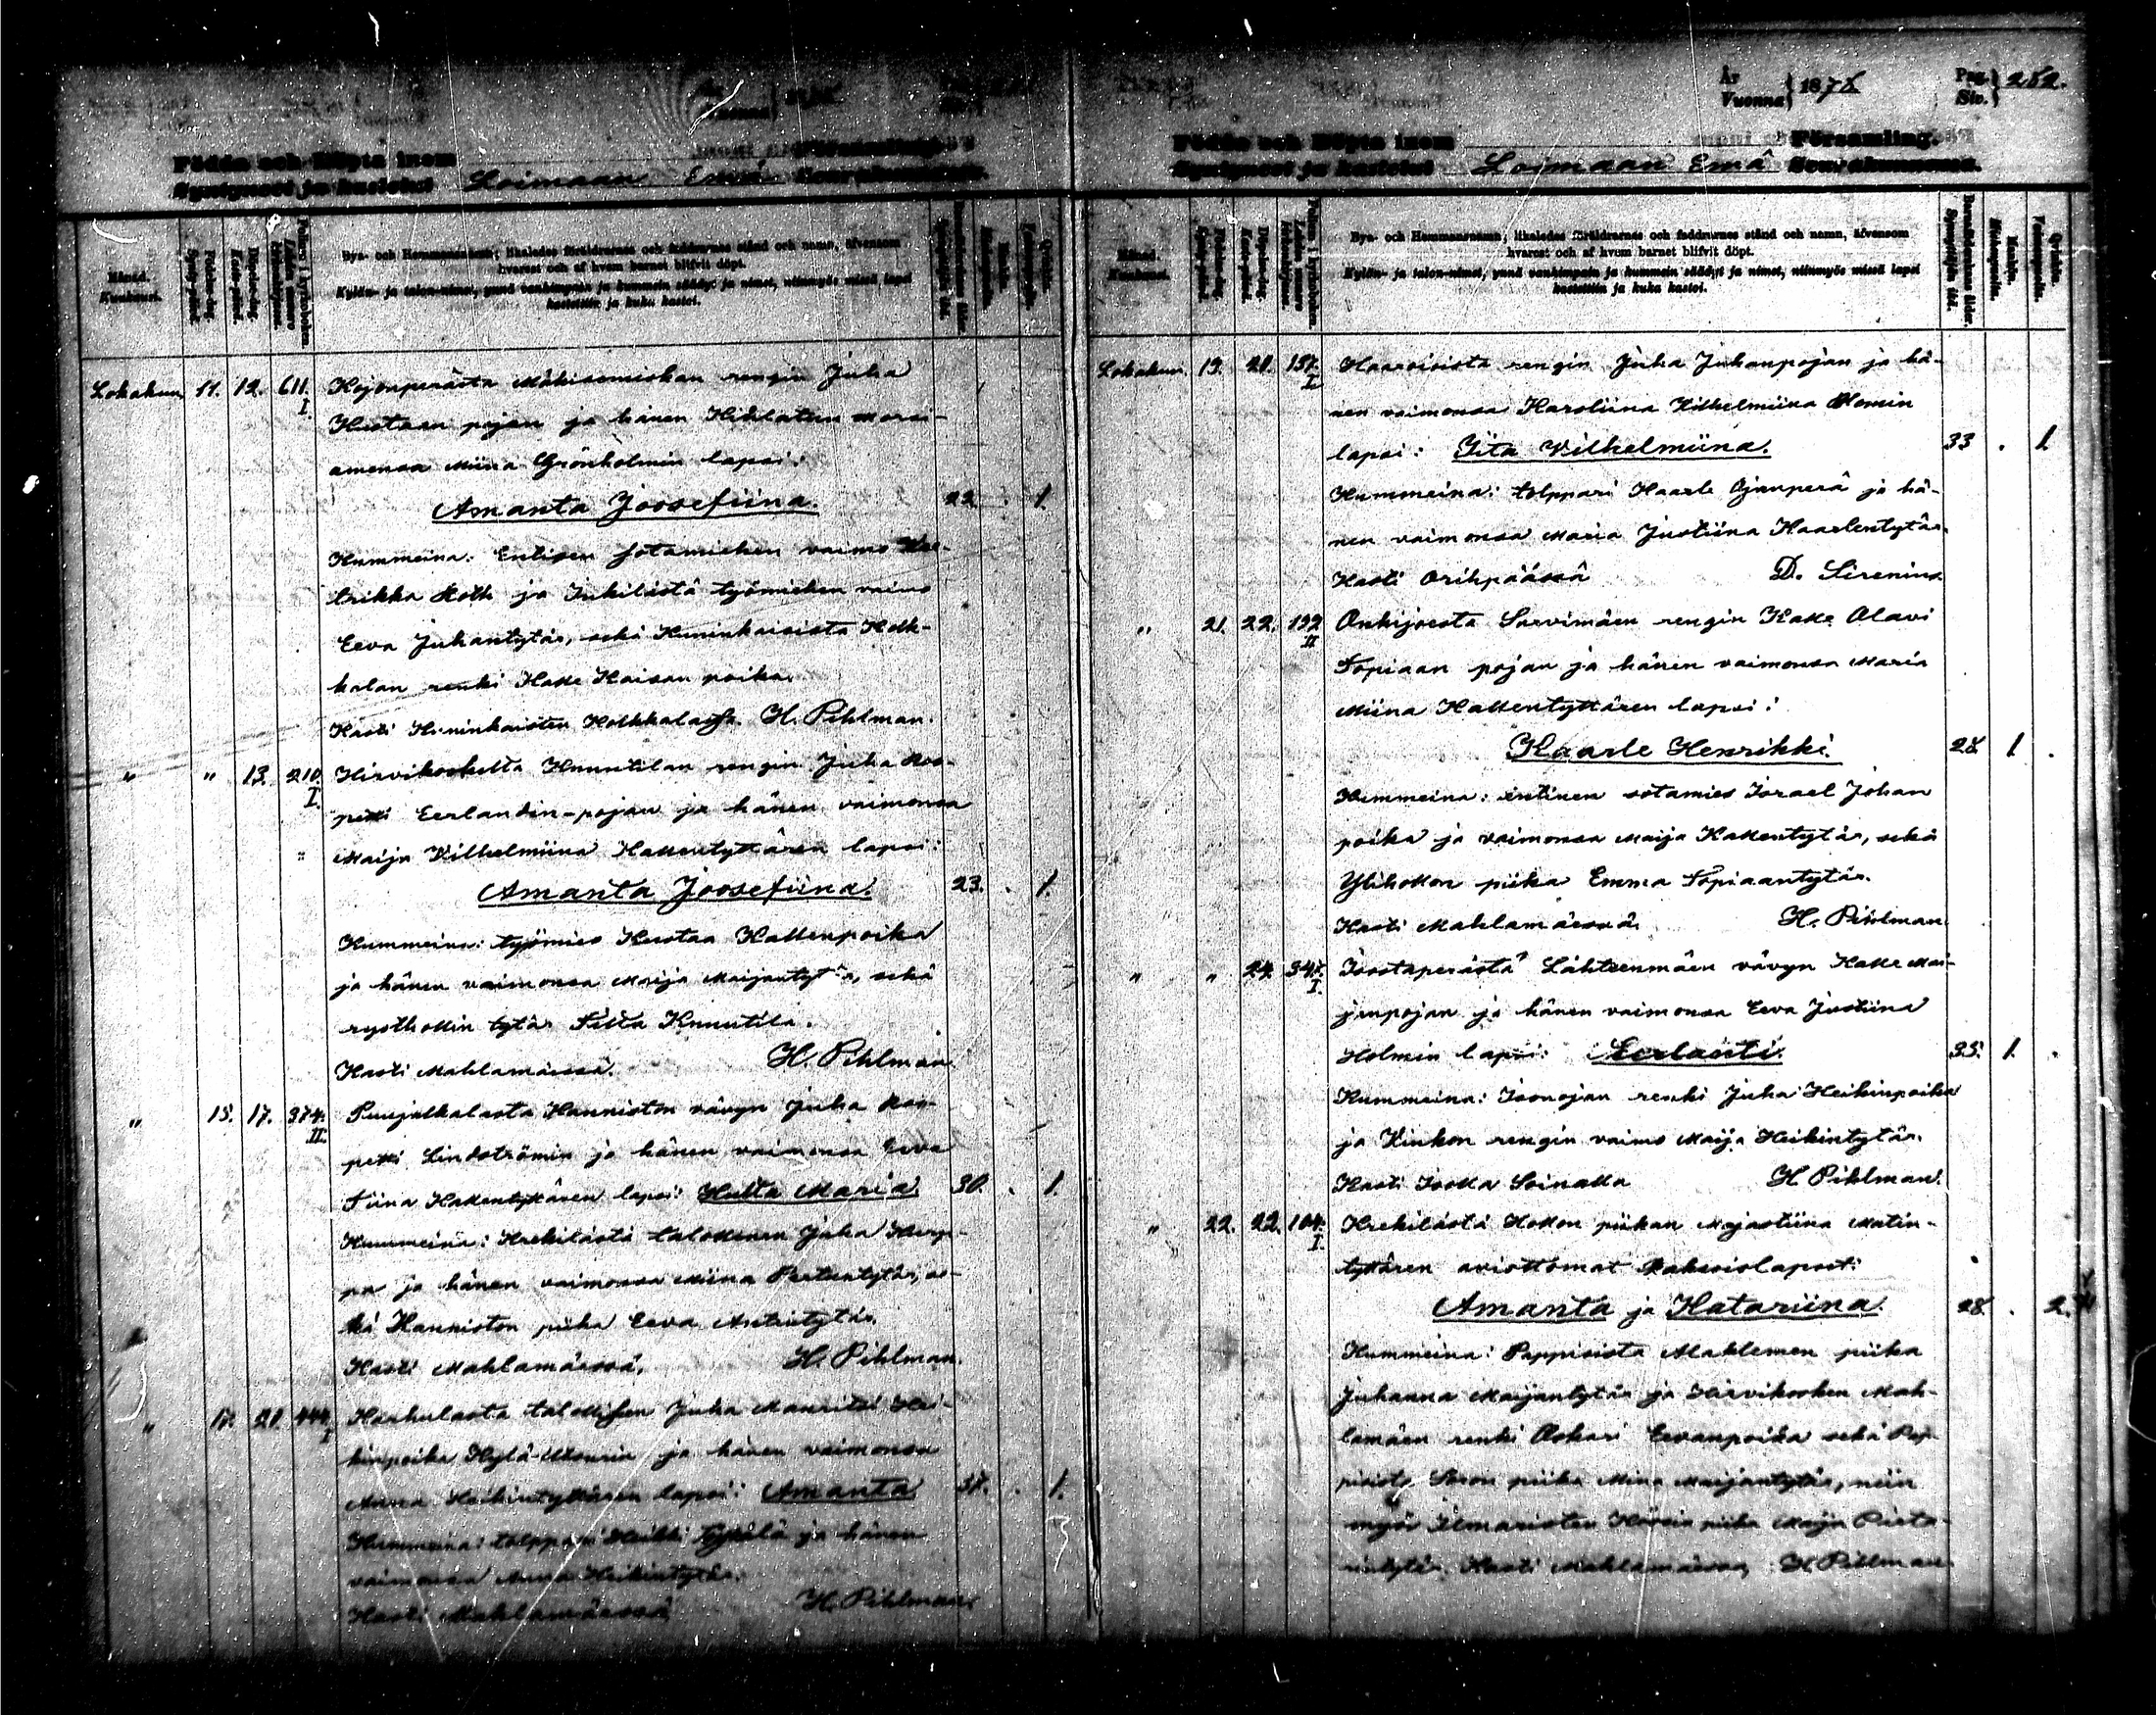 Födde och Döpte inom
Syntyneet ja kastetut Loimaan Emä Seurakunnassa.
Månad.
Kuukausi.
Bya- och Hemmansnamn; likaledes föräldrarnes och faddrarnes stånd och namn, äfvensom
hvarest och af hvem barnet blifvit döpt.
Kylän- ja talon-nimet, ynnä vanhimpain ja kummein säädyt ja nimet, niinmyös missä lapsi
kastettiin ja kuka kastoi.
Lokakuu 11. 12. 611. I. Kojonperästä Mäkisenniskan rengin Juha
Kustaan pojan ja hänen Kihlatun morsi-
amensa Miina Grönholmin lapsi:
Amanta Joosefiina. 22. . 1.
Kummeina: Entisen sotamiehen vaimo
trikka ja Inkilästä työmiehen vaimo
Eeva Juhantytär, sekä Kuninkaisista Holk-
kalan renki Kalle Kaisan poika.
Kasti Kuninkaisten Holkkalassa. H. Pihlman.
" " 13. 210. I. Hirvikoskelta Knuutilan rengin Juha Roo-
petti Eerlandin-pojan ja hänen vaimonsa
Maija Vilhelmiina Kallentyttären lapsi:
Amanta Joosefiina. 23. . 1.
Kummeina: työmies Kustaa Kallenpoika
ja hänen vaimonsa Maija Maijantytär, sekä
rysthollin tytär Knuutila.
Kasti Mahlamäessä. H. Pihlman.
" 15. 17. 374. II. Puujalkalasta Hanniston vävyn Juha Roo-
petti Lindströmin ja hänen vaimonsa Eeva
Tiina Kallentyttären lapsi: Hulta Maria. 30. . 1.
Kummeina: Krekilästä talollinen Juha
pa ja hänen vaimonsa Miina Pertuntytär, se-
kä Hanniston piika Eeva Antintytär.
Kasti Mahlamäessä. H. Pihlman.
" 17. 21. 444. I Haukulasta talollisen Juha Mauritsi Hei-
kinpoika Kylä-Uoturin ja hänen vaimonsa
Anna Heikintyttären lapsi: Amanta 37. . 1.
Kummeina: tolppari Heikki ja hänen
vaimonsa Anna Heikintytär.
Kasti Mahlamäessä H. Pihlman.
År
Vuonna } 1878
Pag.
Siv. } 282.
Födde och Döpte inom Församling.
Syntyneet ja kastetut Loimaan Emä Seurakunnassa.
Månad.
Kuukausi.
Bya- och Hemmansnamn; likaledes föräldrarnes och faddrarnes stånd och namn, äfvensom
hvarest och af hvem barnet blifvit döpt.
Kylän- ja talon-nimet, ynnä vanhimpain ja kummein säädyt ja nimet, niinmyös missä lapsi
kastettiin ja kuka kastoi.
Lokakuu. 19. 21. 157. I. Haaroisista rengin Juha Juhanpojan ja hä-
nen vaimonsa Karoliina Vilhelmiina
lapsi: Iita Vilhelmiina. 33 . 1.
Kummeina: tolppari Kaarle Ojanperä ja hä-
nen vaimonsa Maria Justiina Kaarlentytär.
Kasti Orihpäässä D. Sirenius
" 21. 22. 192 II Onkijoesta Sarvimäen rengin Kalle Olavi
Topiaan pojan ja hänen vaimonsa Maria
Miina Kallentyttären lapsi:
Kaarle Henrikki. 28 1 .
Kummeina: entinen sotamies Israel Johan
poika ja vaimonsa Maija Kallentytär, sekä
Ylihollon piika Emma Topiaantytär.
Kasti Mahlamäessä. H. Pihlman
" " 24. I. Joostaperästä Lähteenmäen vävyn Kalle Mai-
janpojan ja hänen vaimonsa Eeva Justiina
Holmin lapsi: Eerlanti. 35. 1. .
Kummeina: Isonojan renki Juha Heikinpoika
ja Kinkon rengin vaimo Maija Heikintytär.
Kasti H. Pihlman.
" 22. 22. 104. I. Krekilästä Hollon piikan Majastiina Matin-
tyttären aviottomat kaksoislapset:
Amanta ja Katariina. 28. . 2.
Kummeina: Pappisista Alaklemen piika
Juhanna Maijantytär ja Hirvikosken Mah-
lamäen renki Oskari Eevanpoika sekä Pap-
pisista piika Miina Maijantytär, niin
myös Ilmaristen piika Maija
Kasti Mahlamäessä, H. Pihlman